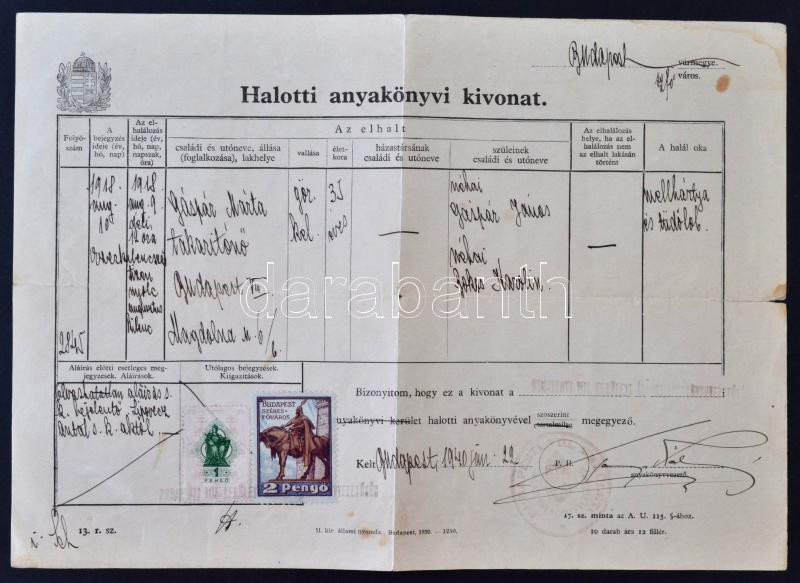 Budapest vármegye.
szfő város.
Halotti anyakönyvi kivonat.
Folyó-
szám
A
bejegyzés
ideje (év,
hó, nap)
Az el-
halálozás
ideje (év,
hó, nap,
napszak,
óra)
Az elhalt
családi és utóneve, állása
(foglalkozása), lakhelye
vallása
élet-
kora
házastársának
családi és utóneve
szüleinek
családi és utóneve
Az elhalálozás
helye, ha az el-
halálozás nem
az elhalt lakásán
történt
A halál oka
2845
1918
aug.
10
1918
aug. 9
Gáspár Márta
takarítónő
Budapest VIII
Magdolna u.
gör.
kel.
35
éves
—
néhai
Gáspár János
néhai
Karolin
—
mellhártya
és tüdőlob
darabanth
Aláírás előtti esetleges meg-
jegyzések. Aláírások.
Utólagos bejegyzések.
Kiigazítások.
olvashatatlan aláírás s.
k. bejelentő
Antal s. k. aktól
1
PENGŐ
BUDAPEST
SZÉKES-
FŐVÁROS
2 Pengő
Bizonyítom, hogy ez a kivonat a
anyakönyvi kerület halotti anyakönyvével szószerint tartalmilag megegyező.
Kelt Budapest, 1940 jún. 22
P. H.
anyakönyvvezető.
13. r. sz.
M. kir. állami nyomda. Budapest, 1939. — 1250.
17. sz. minta az A. U. 115. §-ához.
10 darab ára 12 fillér.